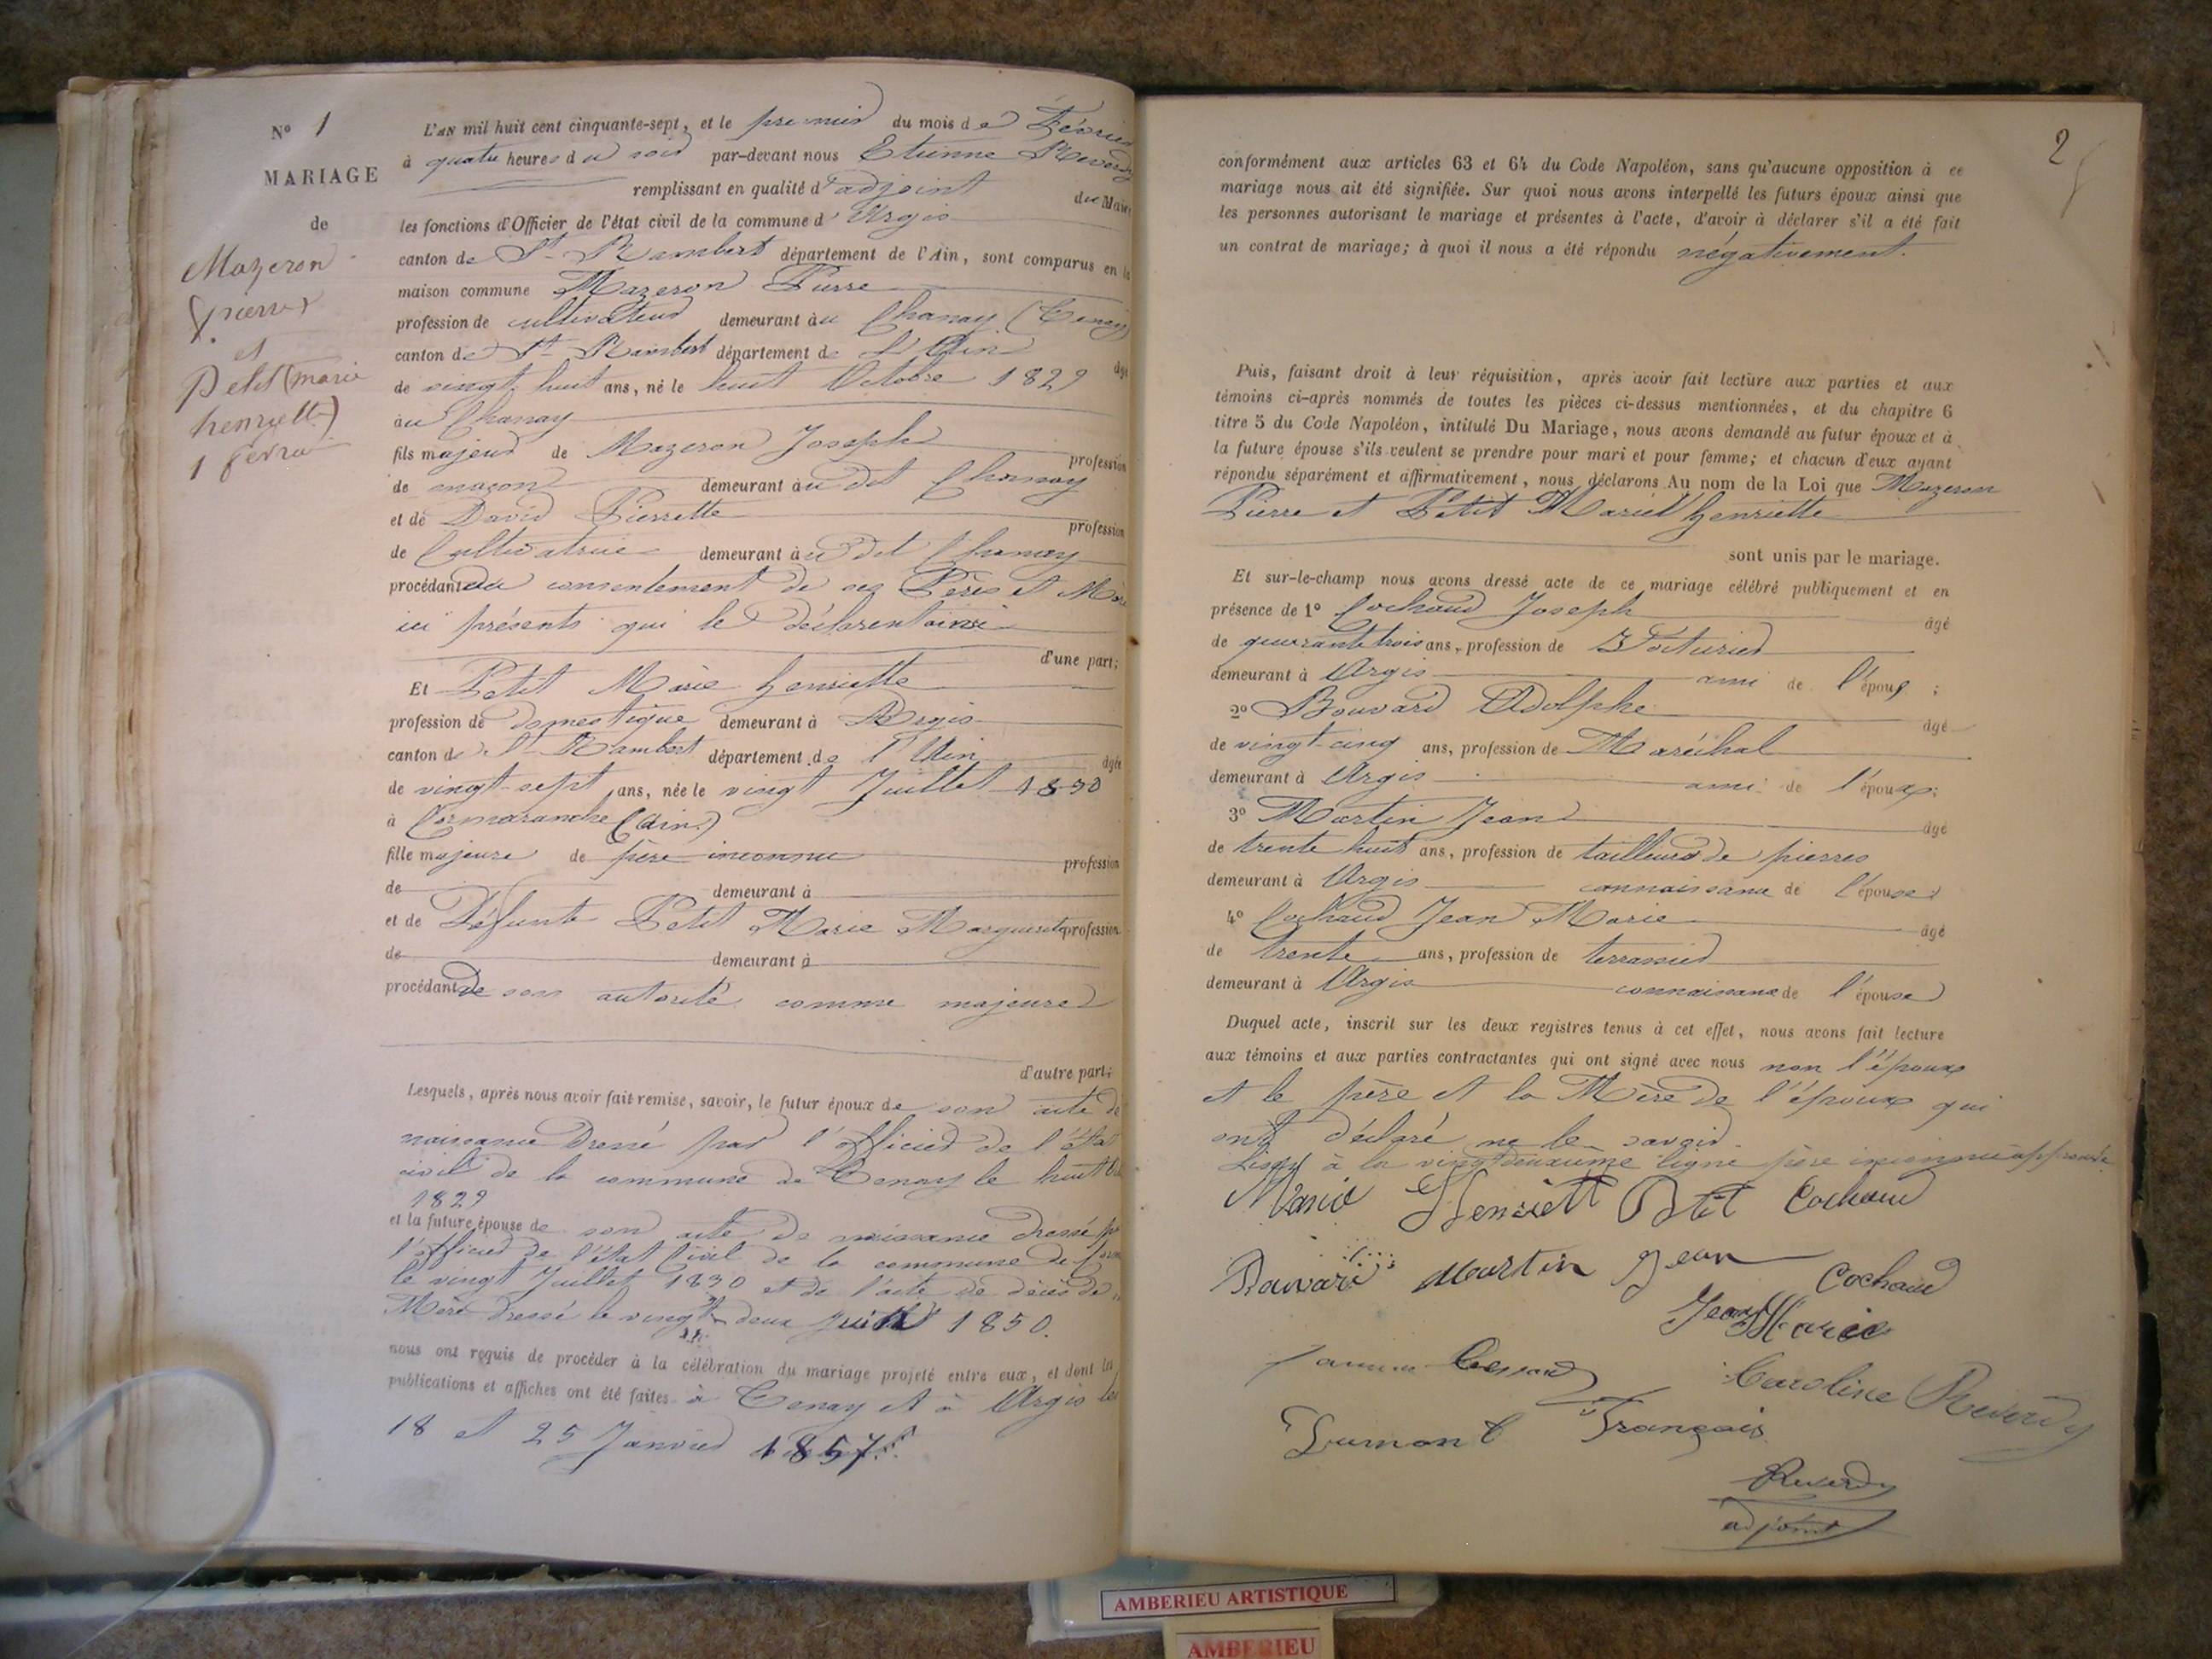 N° 1
MARIAGE
de
Mazeron
pierre
et
Petit (marie
henriette)
1 février
L'AN mil huit cent cinquante-sept, et le premier du mois de Février
à quatre heures du soir par-devant nous Etienne Reverdy
remplissant en qualité d'adjoint du Maire
les fonctions d'Officier de l'état civil de la commune d'Argis
canton de St Rambert département de l'Ain, sont comparus en la
maison commune Mazeron Pierre
profession de cultivateur demeurant au Chanay (Tenay)
canton de St Rambert département de l'Ain âgé
de vingt huit ans, né le huit Octobre 1829
au Chanay
fils majeur de Mazeron Joseph profession
de maçon demeurant au dit Chanay
et de David Pierrette profession
de Cultivatrice demeurant au dit Chanay
procédant du consentement de ses Père et Mère
ici présents qui le déclarent ainsi
d'une part;
Et Petit Marie henriette
profession de domestique demeurant à Argis
canton de St Rambert département de l'Ain âgée
de vingt-sept ans, née le vingt Juillet 1830
à Cormaranche (Ain)
fille majeure de père inconnu profession
de demeurant à
et de Défunte Petit Marie Marguerite profession
de demeurant à
procédant de son autorité comme majeure
d'autre part;
Lesquels, après nous avoir fait remise, savoir, le futur époux de son acte de
naissance Dressé par l'officier de l'état
civil de la commune de Tenay le huit
1829
et la future épouse de son acte de naissance dressé par
l'officier de l'état Civil de la commune de
le vingt Juillet 1830 et de l'acte de décès de
Mère dressé le vingt deux 1850.
nous ont requis de procéder à la célébration du mariage projeté entre eux, et dont les
publications et affiches ont été faites à Tenay et à Argis les
18 et 25 Janvier 1857
2
conformément aux articles 63 et 64 du Code Napoléon, sans qu'aucune opposition à ce
mariage nous ait été signifiée. Sur quoi nous avons interpellé les futurs époux ainsi que
les personnes autorisant le mariage et présentes à l'acte, d'avoir à déclarer s'il a été fait
un contrat de mariage; à quoi il nous a été répondu négativement.
Puis, faisant droit à leur réquisition, après avoir fait lecture aux parties et aux
témoins ci-après nommés de toutes les pièces ci-dessus mentionnées, et du chapitre 6
titre 5 du Code Napoléon, intitulé Du Mariage, nous avons demandé au futur époux et à
la future épouse s'ils veulent se prendre pour mari et pour femme; et chacun d'eux ayant
répondu séparément et affirmativement, nous déclarons Au nom de la Loi que Mazeron
Pierre et Petit Marie henriette
sont unis par le mariage.
Et sur-le-champ nous avons dressé acte de ce mariage célébré publiquement et en
présence de 1° Cochaud Joseph âgé
de quarante trois ans, profession de Voiturier
demeurant à Argis ami de l'époux;
2° Bouvard Adolphe âgé
de vingt-cinq ans, profession de Maréchal
demeurant à Argis ami de l'époux;
3° Martin Jean âgé
de trente huit ans, profession de tailleur de pierres
demeurant à Argis connaissance de l'épouse
4° Cochaud Jean Marie âgé
de trente ans, profession de terrassier
demeurant à Argis connaissance de l'épouse
Duquel acte, inscrit sur les deux registres tenus à cet effet, nous avons fait lecture
aux témoins et aux parties contractantes qui ont signé avec nous non l'époux
et le père et la Mère de l'époux qui
ont déclaré ne le savoir
Lisez à la vingt deuxième ligne père inconnu approuvé
Marie Henriett Petit Cochaud
Bouvard Martin Jean
Cochaud
Jean Marie
Caroline Reverdy
Dumont François
Reverdy
adjoint
AMBERIEU ARTISTIQUE
AMBERIEU